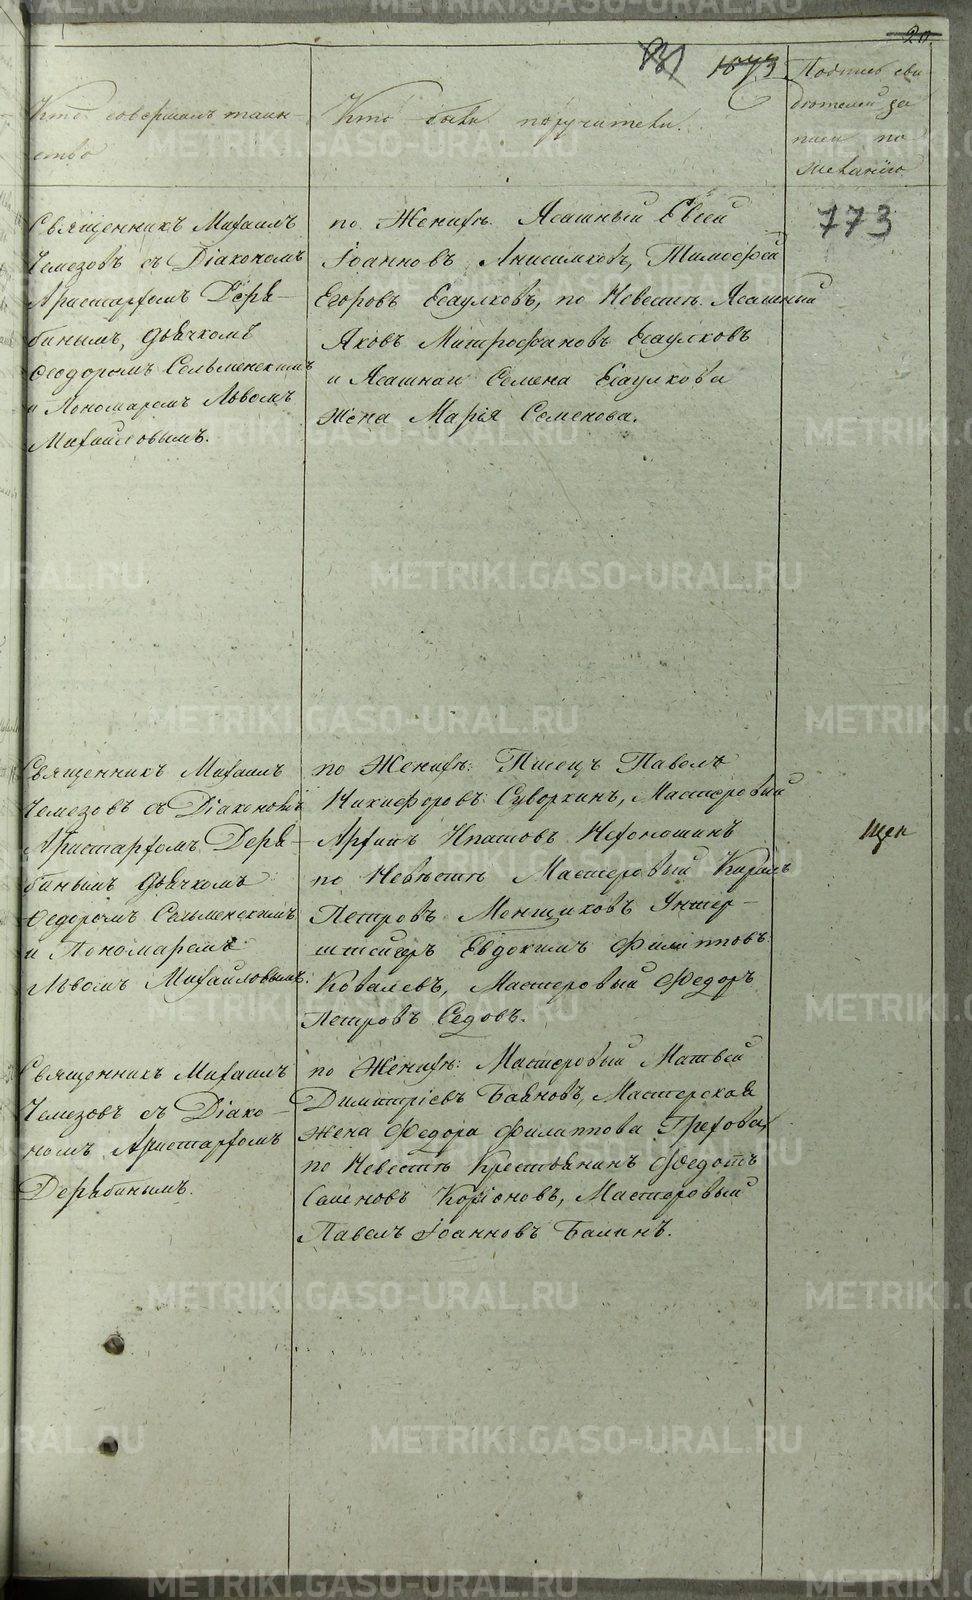 20.
1073
Кто совершалъ таин-
ство
Кто были поручители.
Подпись сви
дѣтелей за
писи по
желанію
773
Священникъ Михаилъ
Чемезовъ съ Діакономъ
Аристархомъ Деря-
бинымъ, Дьячкомъ
Ѳеодоромъ Сельменскимъ
и Пономаремъ Львомъ
Михайловымъ.
по Женихѣ: Ясашный Евсей
Іоанновъ Анисимковъ, Тимофей
Егоровъ Есаулковъ, по Невестѣ Ясашный
Яковъ Митрофановъ Есаулковъ
и Ясашнаго Семена Есаулкова
жена Марія Семенова.
Священникъ Михаилъ
Чемезовъ съ Діакономъ
Аристархомъ Деря-
бинымъ Дьячкомъ
Ѳедоромъ Сельменскимъ
и Пономаремъ
Львомъ Михайловымъ.
по Женихѣ: Писецъ Павелъ
Никифоровъ Суворкинъ, Мастеровый
Архипъ Ипатовъ
по Невѣстѣ Мастеровый Кирилъ
Петровъ Менщиковъ Унтер-
штейгеръ Евдокимъ Филипповъ
Ковалевъ, Мастеровый Федоръ
Петровъ Седовъ.
Священникъ Михаилъ
Чемезовъ съ Діако-
номъ Аристархомъ
Дерябинымъ.
по Женихѣ: Мастеровый Матвей
Димитріевъ Баяновъ, Мастерская
жена Федора Филиппова Грехова,
по Невестѣ Крестьянинъ Федотъ
Семеновъ Корюновъ, Мастеровый
Павелъ Іоанновъ Балинъ.
METRIKI.GASO-URAL.RU